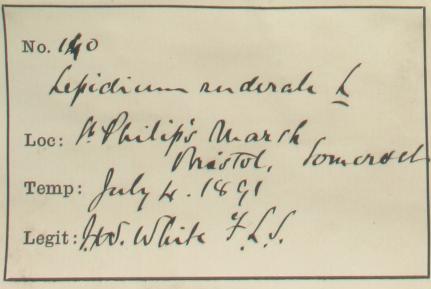 No. 140
Lepidium ruderale L
Loc: St Philip's Marsh
Bristol, Somerset
Temp: July 4. 1891
Legit: J.W. White F.L.S.